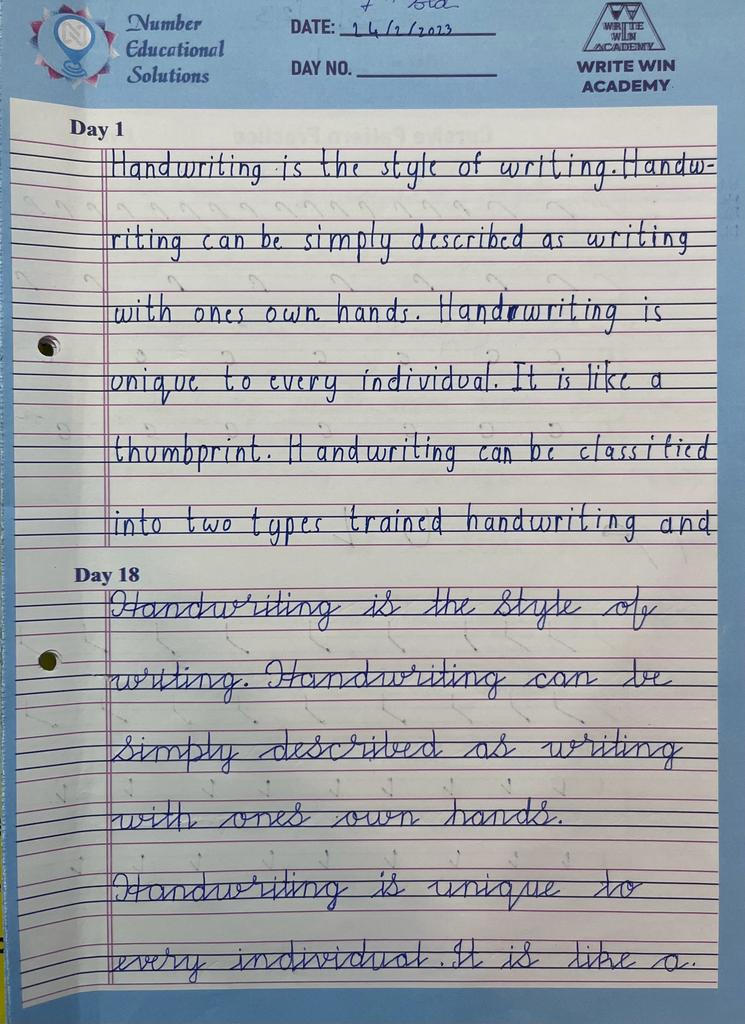 Number
Educational
Solutions
DATE: 14/2/2023
DAY NO.
WRITE
WIN
ACADEMY
WRITE WIN
ACADEMY
Day 1
Handwriting is the style of writing. Handw-
riting can be simply described as writing
with ones own hands. Handrwriting is
unique to every individual. It is like a
thumbprint. Handwriting can be classified
into two types trained handwriting and
Day 18
Handwriting is the style of
writing. Handwriting can be
simply described as writing
with ones own hands.
Handwriting is unique to
every individual. It is like a.